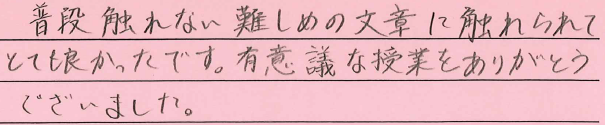 普段触れない難しめの文章に触れられて
とても良かったです。有意議な授業をありがとう
ございました。